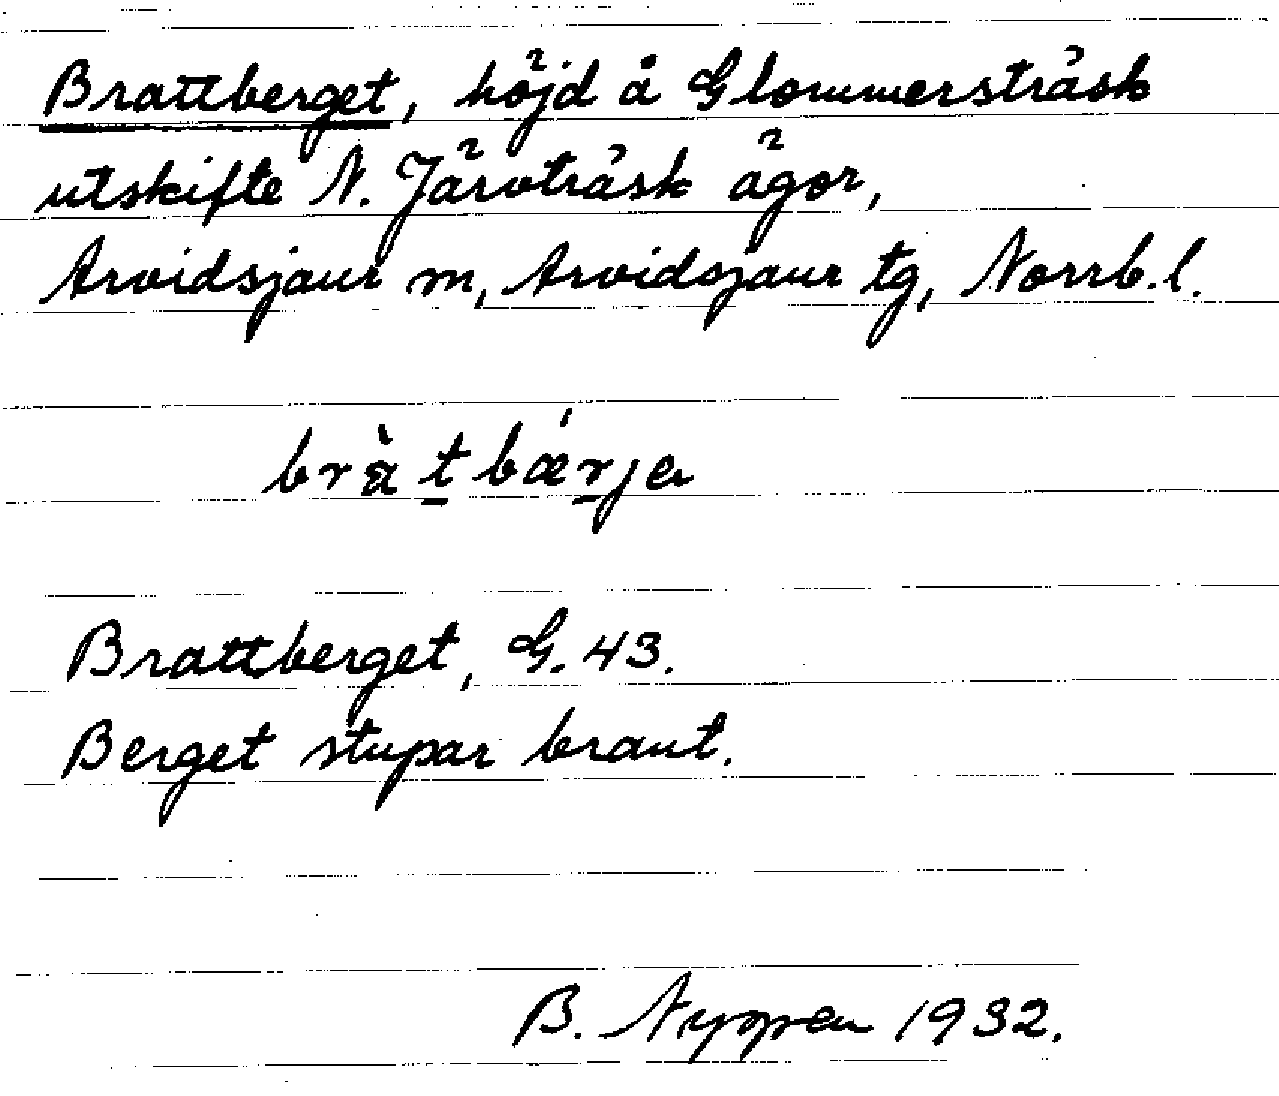 Brattberget, höjd å Glommersträsk
utskifte N. Järvträsk ägor,
Arvidsjaur m, Arvidsjaur tg, Norrb.l.
bràtbǽrjɐ
Brattberget, G. 43.
Berget stupar brant.
B. 1932.